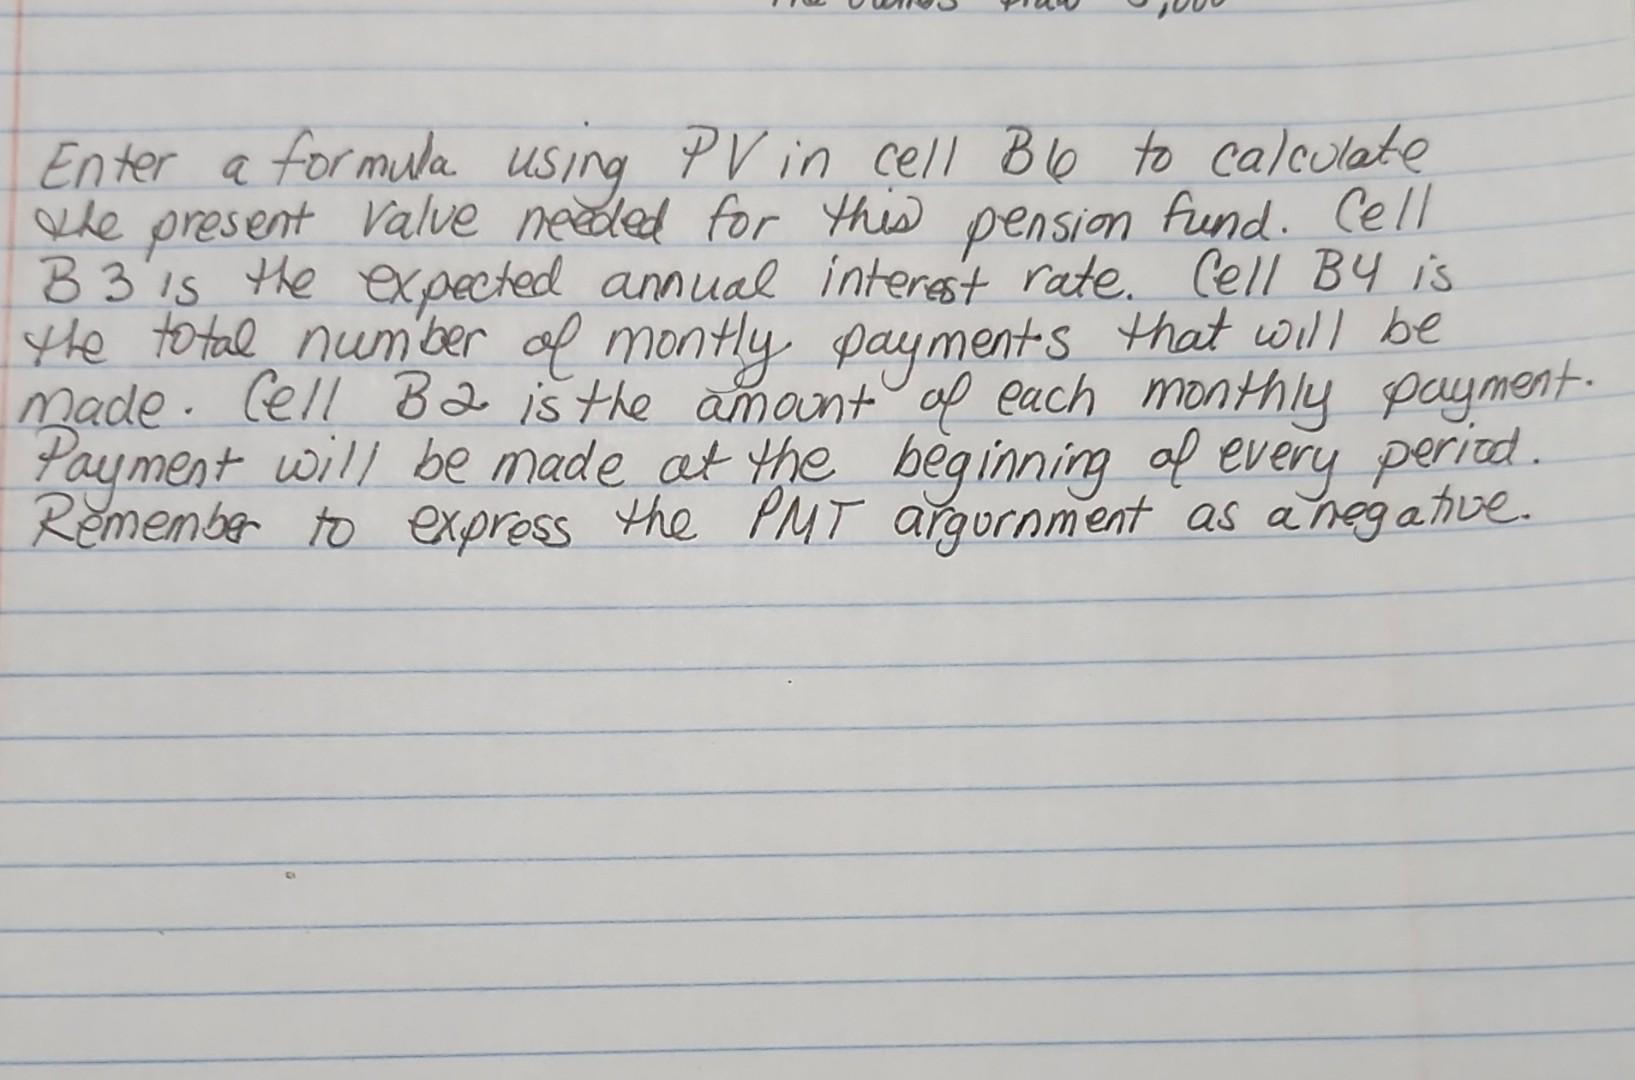 Enter a formula using PV in cell B6 to calculate
the present value needed for this pension fund. Cell
B3 is the expected annual interest rate. Cell B4 is
the total number of montly payments that will be
made. Cell B2 is the amount of each monthly payment.
Payment will be made at the beginning of every period.
Remember to express the PMT argurnment as a negative.